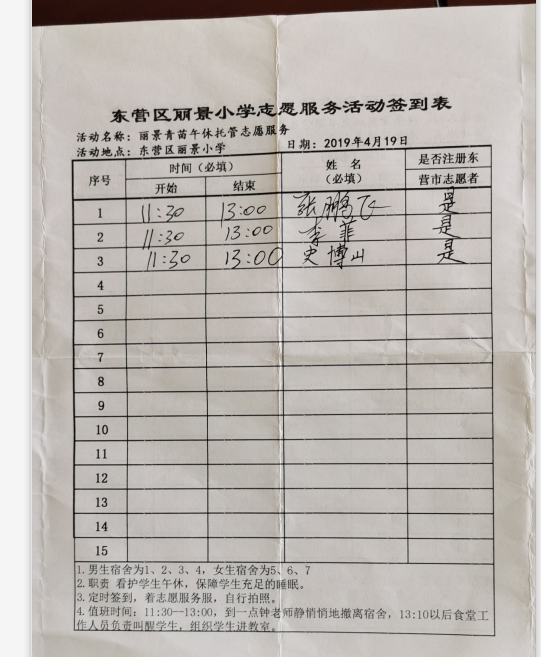 东营区丽景小学志愿服务活动签到表
活动名称：丽景青苗午休托管志愿服务
活动地点：东营区丽景小学 日期：2019年4月19日
序号 时间（必填） 姓名（必填） 是否注册东营市志愿者
开始 结束
1 11:30 13:00 张鹏飞 是
2 11:30 13:00 李菲 是
3 11:30 13:00 史博山 是
4
5
6
7
8
9
10
11
12
13
14
15
1.男生宿舍为1、2、3、4，女生宿舍为5、6、7
2.职责 看护学生午休，保障学生充足的睡眠。
3.定时签到，着志愿服务服，自行拍照。
4.值班时间：11:30--13:00，到一点钟老师静悄悄地撤离宿舍，13:10以后食堂工
作人员负责叫醒学生，组织学生进教室。